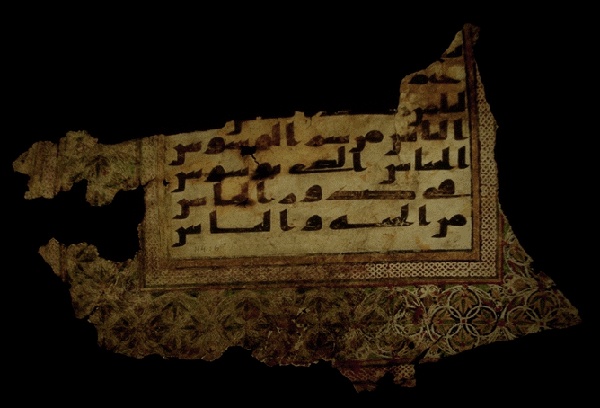 الناس من شر الوسوس
الخناس الذي يوسوس
في صدور الناس
من الجنة والناس